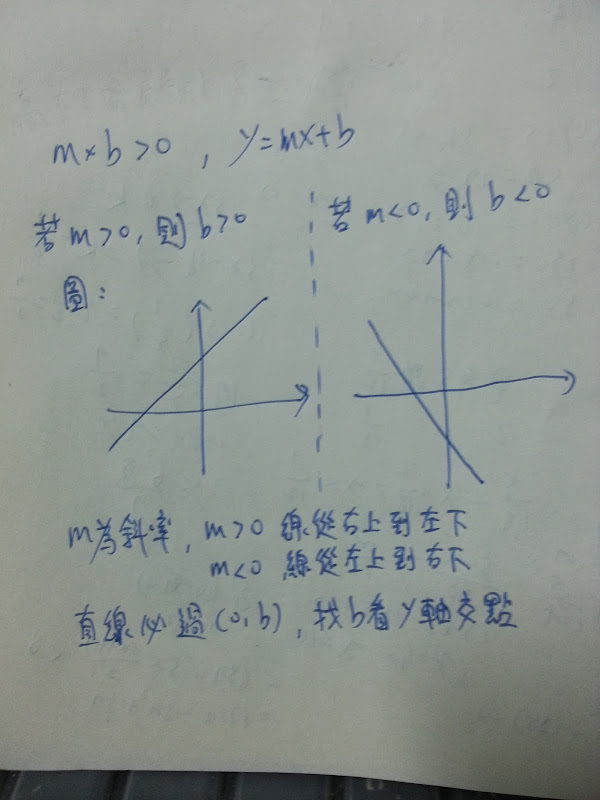 m×b>0 , y=mx+b
若 m>0, 則 b>0
若 m<0, 則 b<0
圖:
m為斜率, m>0 線從右上到左下
m<0 ,線從左上到右下
直線必過(0,b), 找b看y軸交點